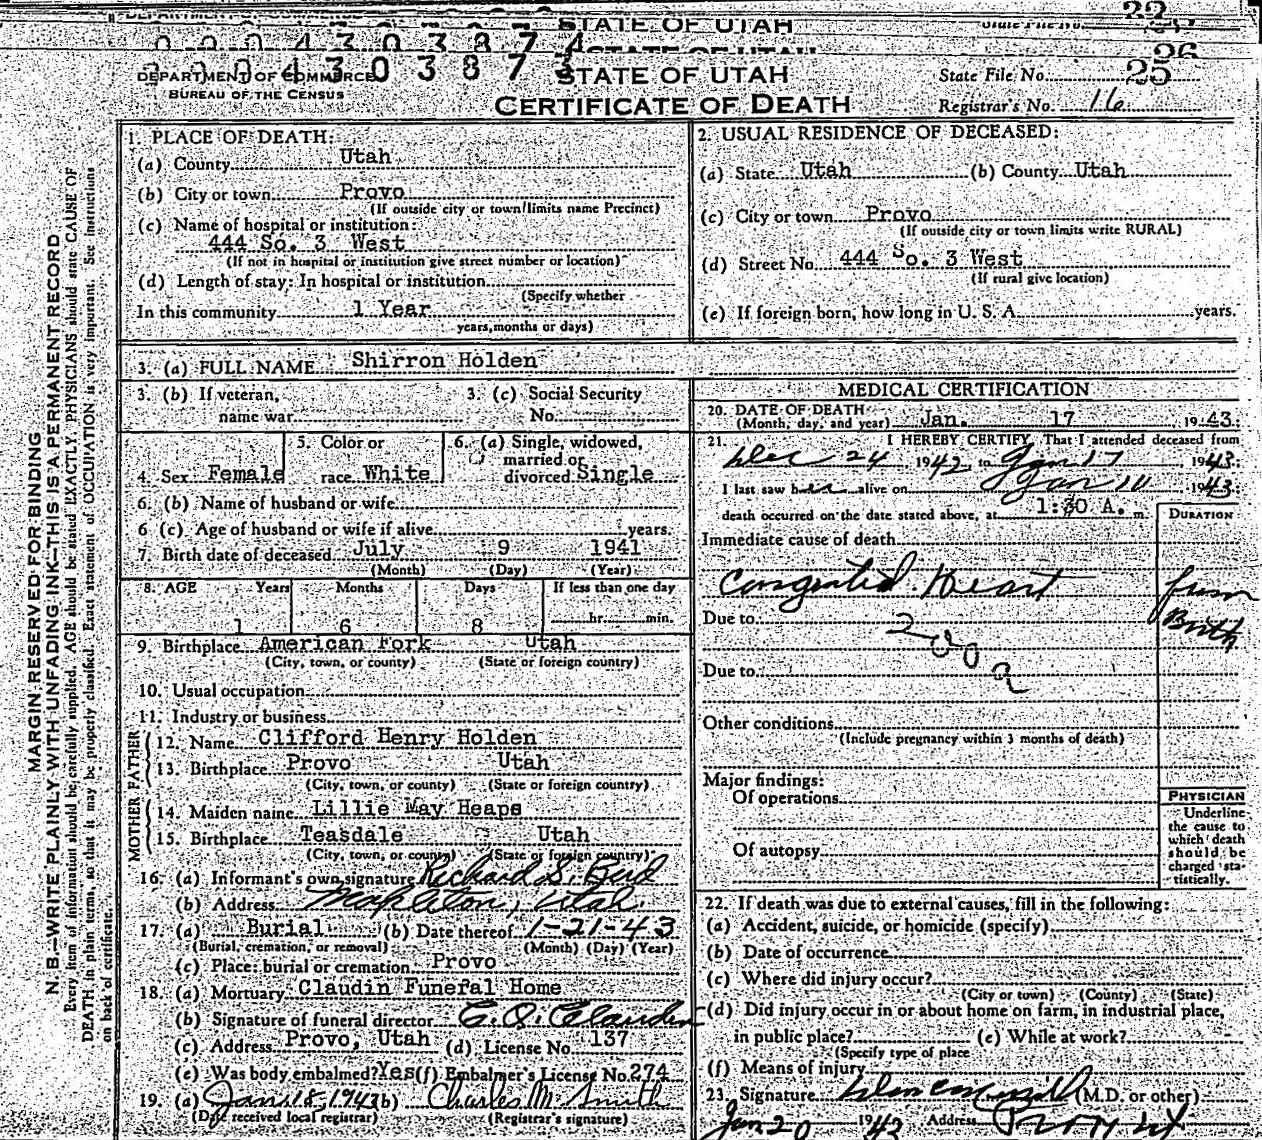 STATE OF UTAH
0 0 0 4 3 0 3 8 7 4
DEPARTMENT OF COMMERCE
BUREAU OF THE CENSUS
STATE OF UTAH
CERTIFICATE OF DEATH
State File No. 25
Registrar's No. 16
MARGIN RESERVED FOR BINDING
N. B.—WRITE PLAINLY WITH UNFADING INK—THIS IS A PERMANENT RECORD
Every item of information should be carefully supplied. AGE should be stated EXACTLY. PHYSICIANS should state CAUSE OF
DEATH in plain terms, so that it may be properly classified. Exact statement of OCCUPATION is very important. See instructions
on back of certificate.
1. PLACE OF DEATH:
(a) County Utah
(b) City or town Provo
(If outside city or town limits name Precinct)
(c) Name of hospital or institution:
444 So. 3 West
(If not in hospital or institution give street number or location)
(d) Length of stay: In hospital or institution
(Specify whether
In this community 1 Year
years, months or days)
2. USUAL RESIDENCE OF DECEASED:
(a) State Utah (b) County Utah
(c) City or town Provo
(If outside city or town limits write RURAL)
(d) Street No. 444 So. 3 West
(If rural give location)
(e) If foreign born, how long in U. S. A. years.
3. (a) FULL NAME Shirron Holden
3. (b) If veteran, 3. (c) Social Security
name war No.
4. Sex Female 5. Color or race White 6. (a) Single, widowed, married or divorced Single
6. (b) Name of husband or wife
6 (c) Age of husband or wife if alive years.
7. Birth date of deceased July 9 1941
(Month) (Day) (Year)
8. AGE Years Months Days If less than one day
1 6 8 hr. min.
9. Birthplace American Fork Utah
(City, town, or county) (State or foreign country)
10. Usual occupation
11. Industry or business
FATHER
12. Name Clifford Henry Holden
13. Birthplace Provo Utah
(City, town, or county) (State or foreign country)
MOTHER
14. Maiden name Lillie May Heaps
15. Birthplace Teasdale Utah
(City, town, or county) (State or foreign country)
16. (a) Informant's own signature Richard S. Bird
(b) Address Mapleton, Utah
17. (a) Burial (b) Date thereof 1-21-43
(Burial, cremation, or removal) (Month) (Day) (Year)
(c) Place: burial or cremation Provo
18. (a) Mortuary Claudin Funeral Home
(b) Signature of funeral director
(c) Address Provo, Utah (d) License No. 137
(e) Was body embalmed? Yes (f) Embalmer's License No. 274
19. (a) Jan. 18, 1943 (b) Charles M. Smith
(Date received local registrar) (Registrar's signature)
MEDICAL CERTIFICATION
20. DATE OF DEATH
(Month, day, and year) Jan. 17 1943.
21. I HEREBY CERTIFY, That I attended deceased from
Dec 24 1942 to Jan 17, 1943:
I last saw her alive on Jan 10 1943:
death occurred on the date stated above, at 1:30 A. m.
DURATION
Immediate cause of death
Congenital Heart from Birth
Due to
Due to
Other conditions
(Include pregnancy within 3 months of death)
Major findings:
Of operations
Of autopsy
PHYSICIAN
Underline
the cause to
which death
should be
charged sta-
tistically.
22. If death was due to external causes, fill in the following:
(a) Accident, suicide, or homicide (specify)
(b) Date of occurrence
(c) Where did injury occur?
(City or town) (County) (State)
(d) Did injury occur in or about home on farm, in industrial place,
in public place? (e) While at work?
(Specify type of place
(f) Means of injury
23. Signature (M.D. or other)
Jan 20 1943 Address Provo Ut